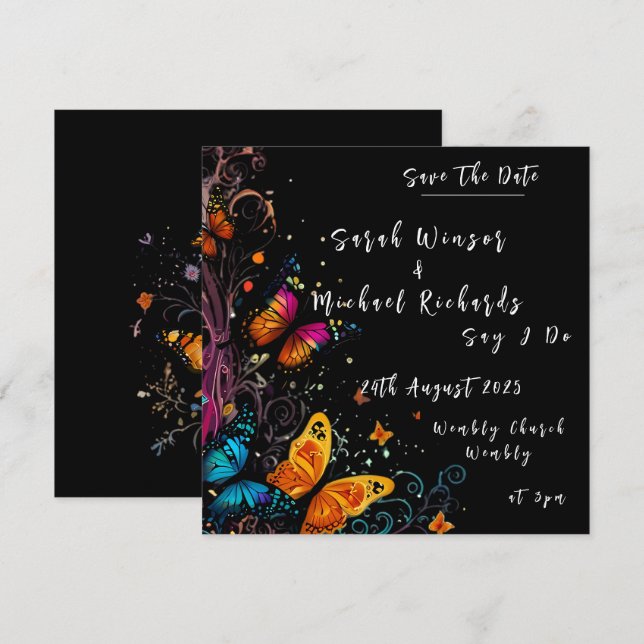 Save The Date
Sarah Winsor
&
Michael Richards
Say I Do
24th August 2025
Wembly Church
Wembly
at 3pm